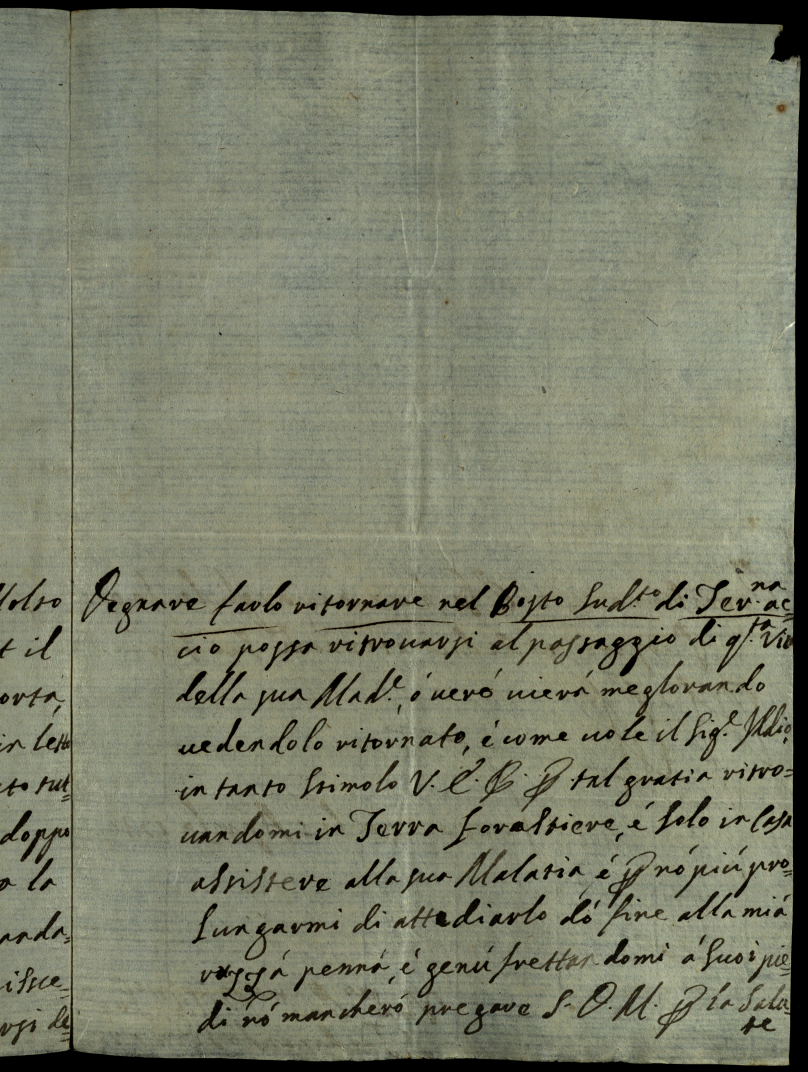 olto
t il
orta,
in letto
to tut=
doppo
o la
anda=
isce=
rsi de=
Degnare farlo ritornare nel Posto Sud.to di Ter.na ac=
cio possa ritrouarsi al passaggio di q.ta Vita
della sua Mad.e, ó ueró uierá meglorando
uedendolo ritornato, é come uole il Sig.e Iddio,
in tanto stimolo V. E. P. tal gratia ritro=
uandomi in Terra forastiere, é solo in Casa
assistere alla sua Malatia, é P nó piú pro=
lungarmi di attediarlo dó fine alla miá
rozzá penná, é genúfrettandomi á suoi pie=
di nó mancheró pregare S. D. M. P la Salu=
te